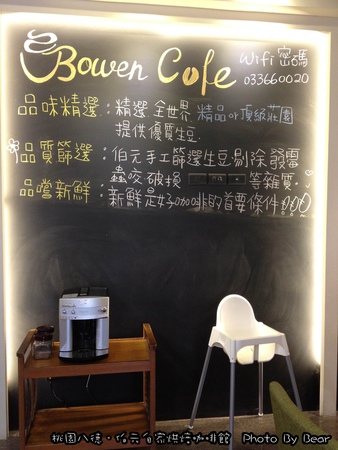 Bowen Cafe
Wifi 密碼
033660020
品味精選：精選全世界 精品or頂級莊園
提供優質生豆.
品質篩選：伯元手工篩選生豆剔除發霉
蟲咬破損 等雜質.
品嚐新鮮：新鮮是好咖啡的首要條件
桃園八德。伯元自家烘焙咖啡館 Photo By Bear